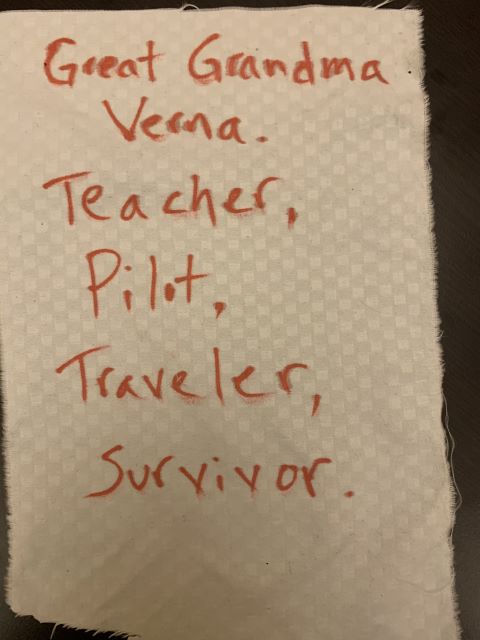 Great Grandma
Verna.
Teacher,
Pilot,
Traveler,
Survivor.